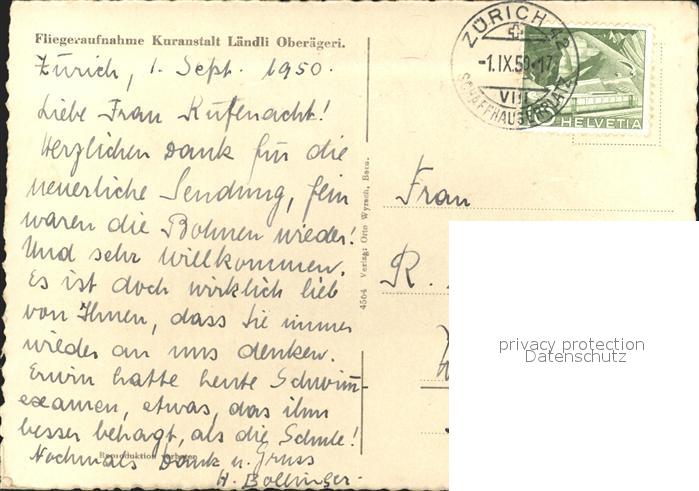 Fliegeraufnahme Kuranstalt Ländli Oberägeri.
Zürich, 1. Sept. 1950.
Liebe Frau Rufenacht!
Herzlichen Dank für die
neuerliche Sendung, fein
waren die Bohnen wieder!
Und sehr willkommen.
Es ist doch wirklich lieb
von Ihnen, dass Sie immer
wieder an uns denken.
Erwin hatte heute Schwimm-
examen, etwas, das ihm
besser behagt, als die Schule!
Nochmals Dank u. Gruss
H. Bollinger.
Reproduktion verboten
4564 Verlag: Otto Wyrsch, Bern.
ZÜRICH 42
-1.IX.50-17
VIII
SCHAFFHAUSERPLATZ
HELVETIA
Frau
R.
privacy protection
Datenschutz